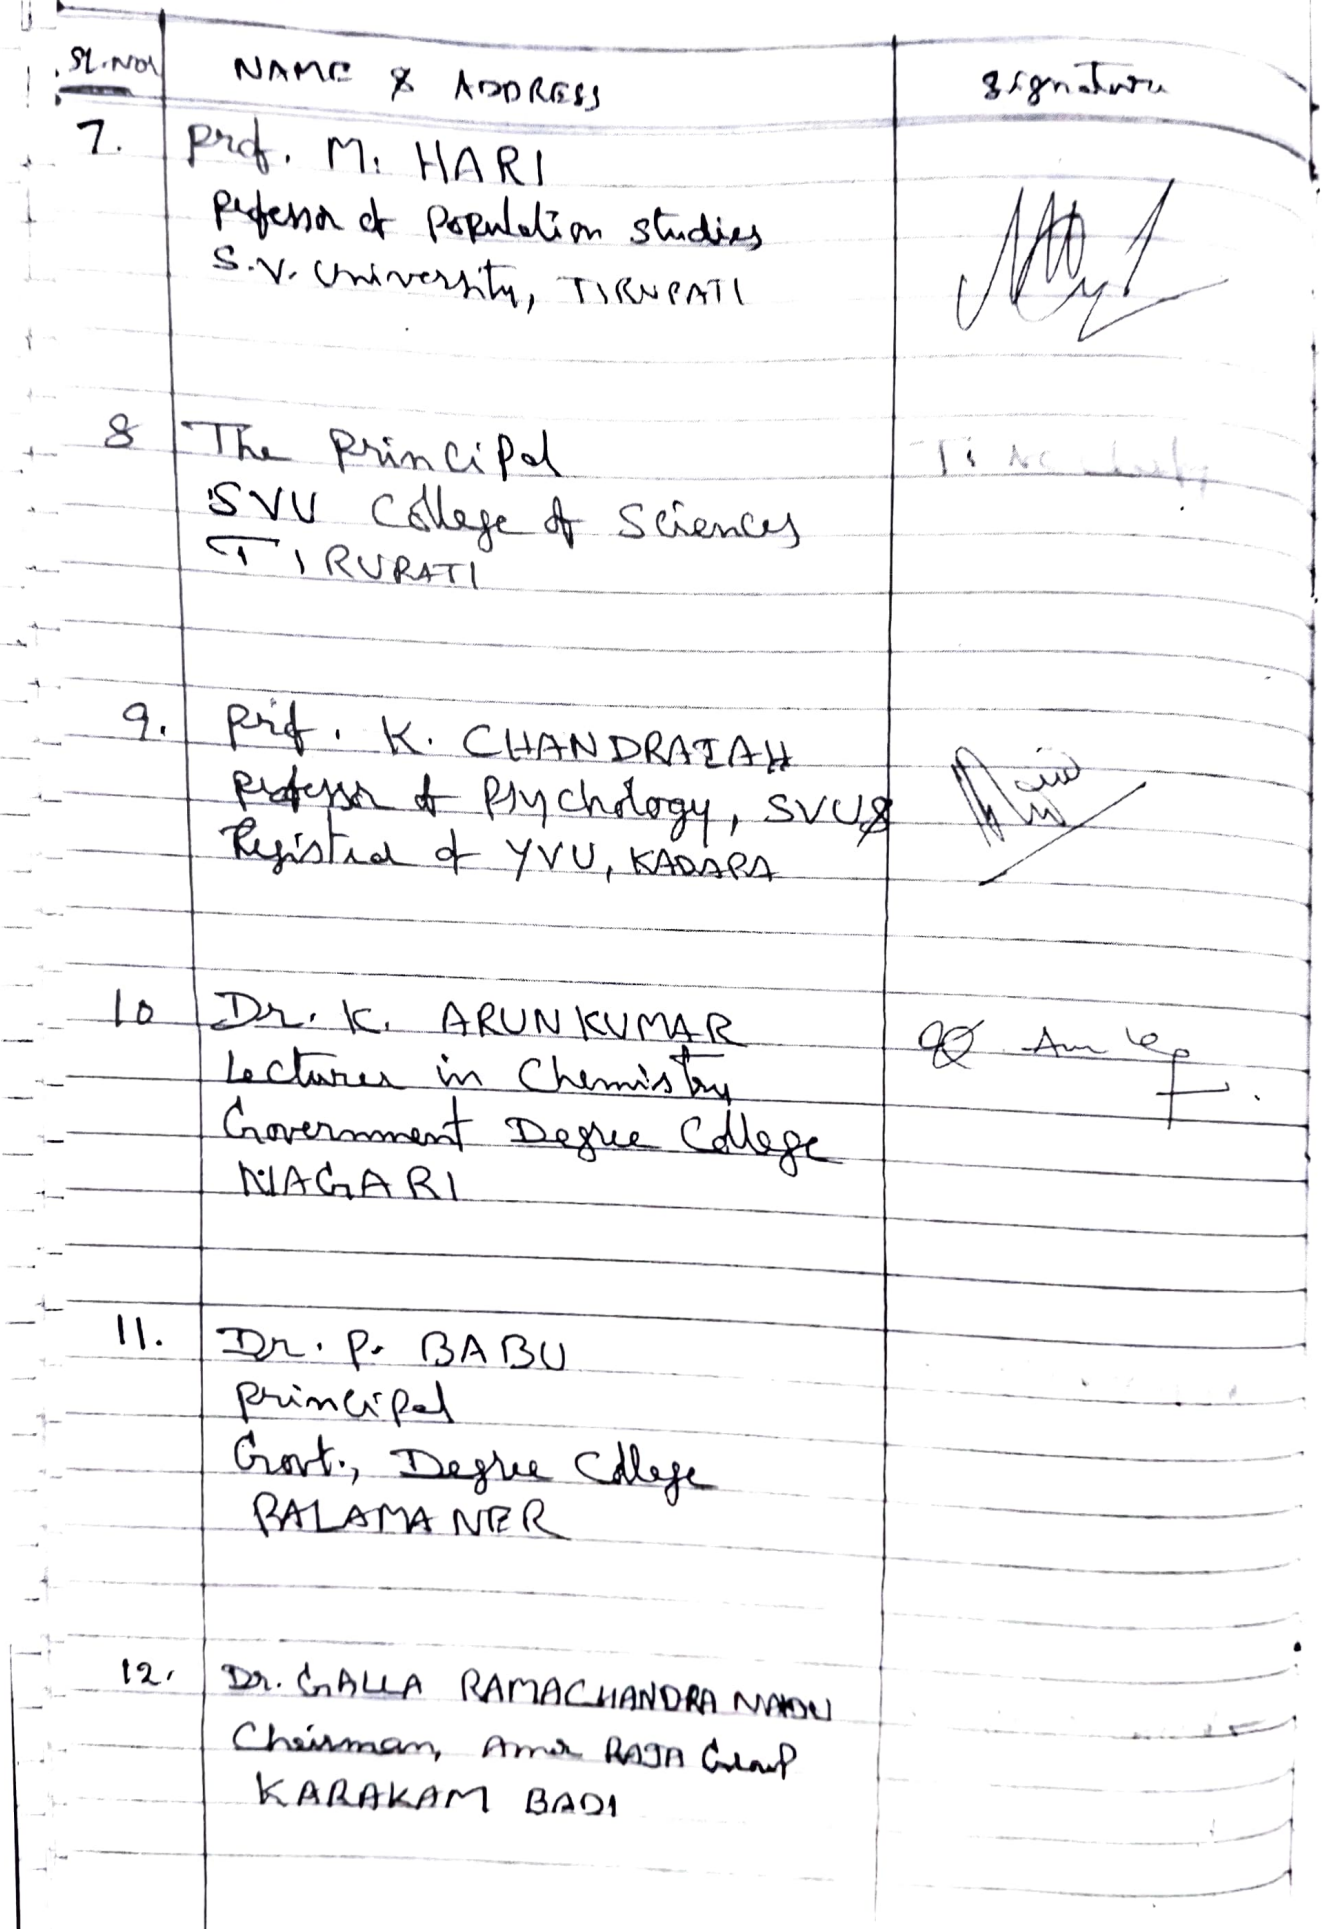 Sl.No. NAME & ADDRESS Signature
7. Prof. M. HARI
Professor of Population Studies
S.V. University, TIRUPATI
8 The Principal
SVU College of Sciences
TIRUPATI
9. Prof. K. CHANDRAIAH
Professor of Psychology, SVU &
Registrar of YVU, KADAPA
10 Dr. K. ARUN KUMAR
Lecturer in Chemistry
Government Degree College
NAGARI
11. Dr. P. BABU
Principal
Govt., Degree College
PALAMANER
12. Dr. GALLA RAMACHANDRA NAIDU
Chairman, Amar RAJA Group
KARAKAM BADI